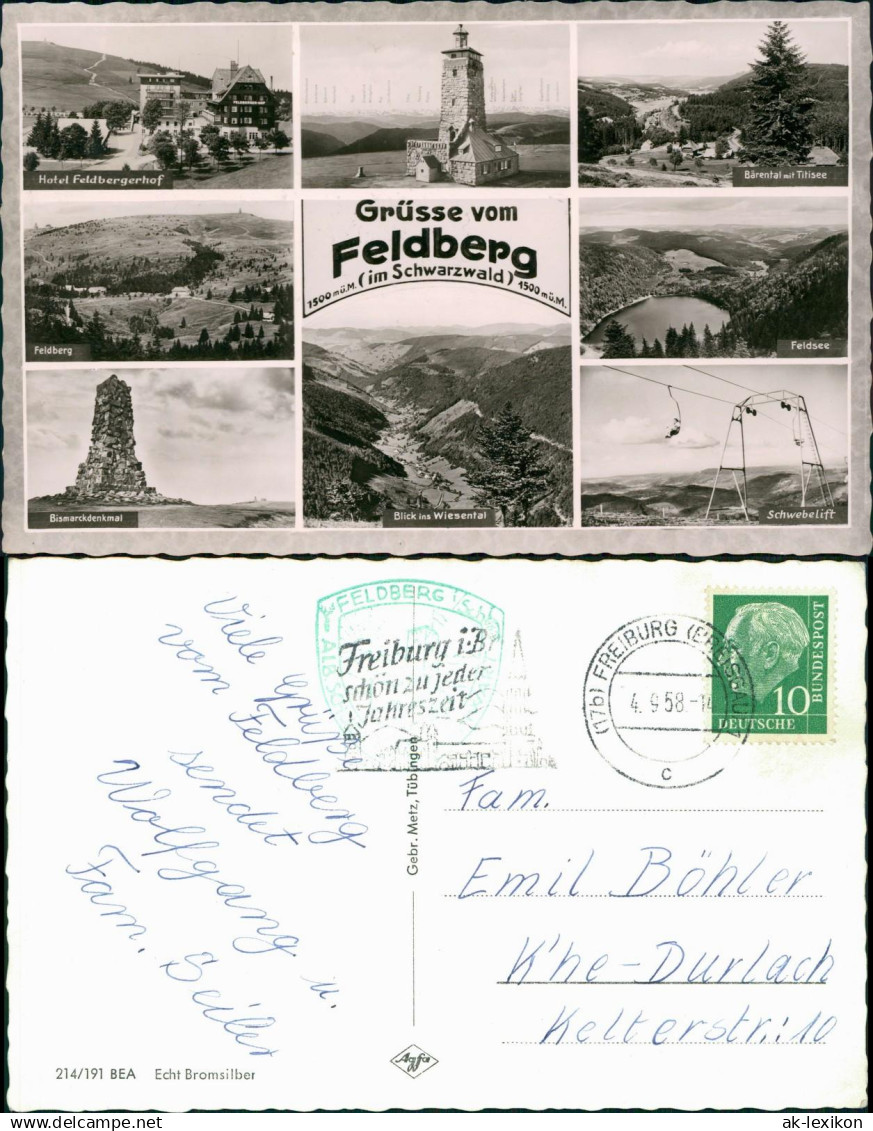 Hotel Feldbergerhof
Bärental mit Titisee
Grüsse vom
Feldberg
(im Schwarzwald)
1500 m ü.M. 1500 m ü.M.
Feldberg
Feldsee
Bismarckdenkmal
Blick ins Wiesental
Schwebelift
Viele Grüsse
vom Feldberg
sendet
Wolfgang u.
Fam. Seiler
FELDBERG
Freiburg i. Br
schön zu jeder
Jahreszeit
(17b) FREIBURG (BREISGAU)
4.9.58.-14
c
10
DEUTSCHE
BUNDESPOST
Gebr. Metz, Tübingen
Fam.
Emil Böhler
K'he-Durlach
Kelterstr.: 10
Agfa
214/191 BEA Echt Bromsilber
ak-lexikon.com